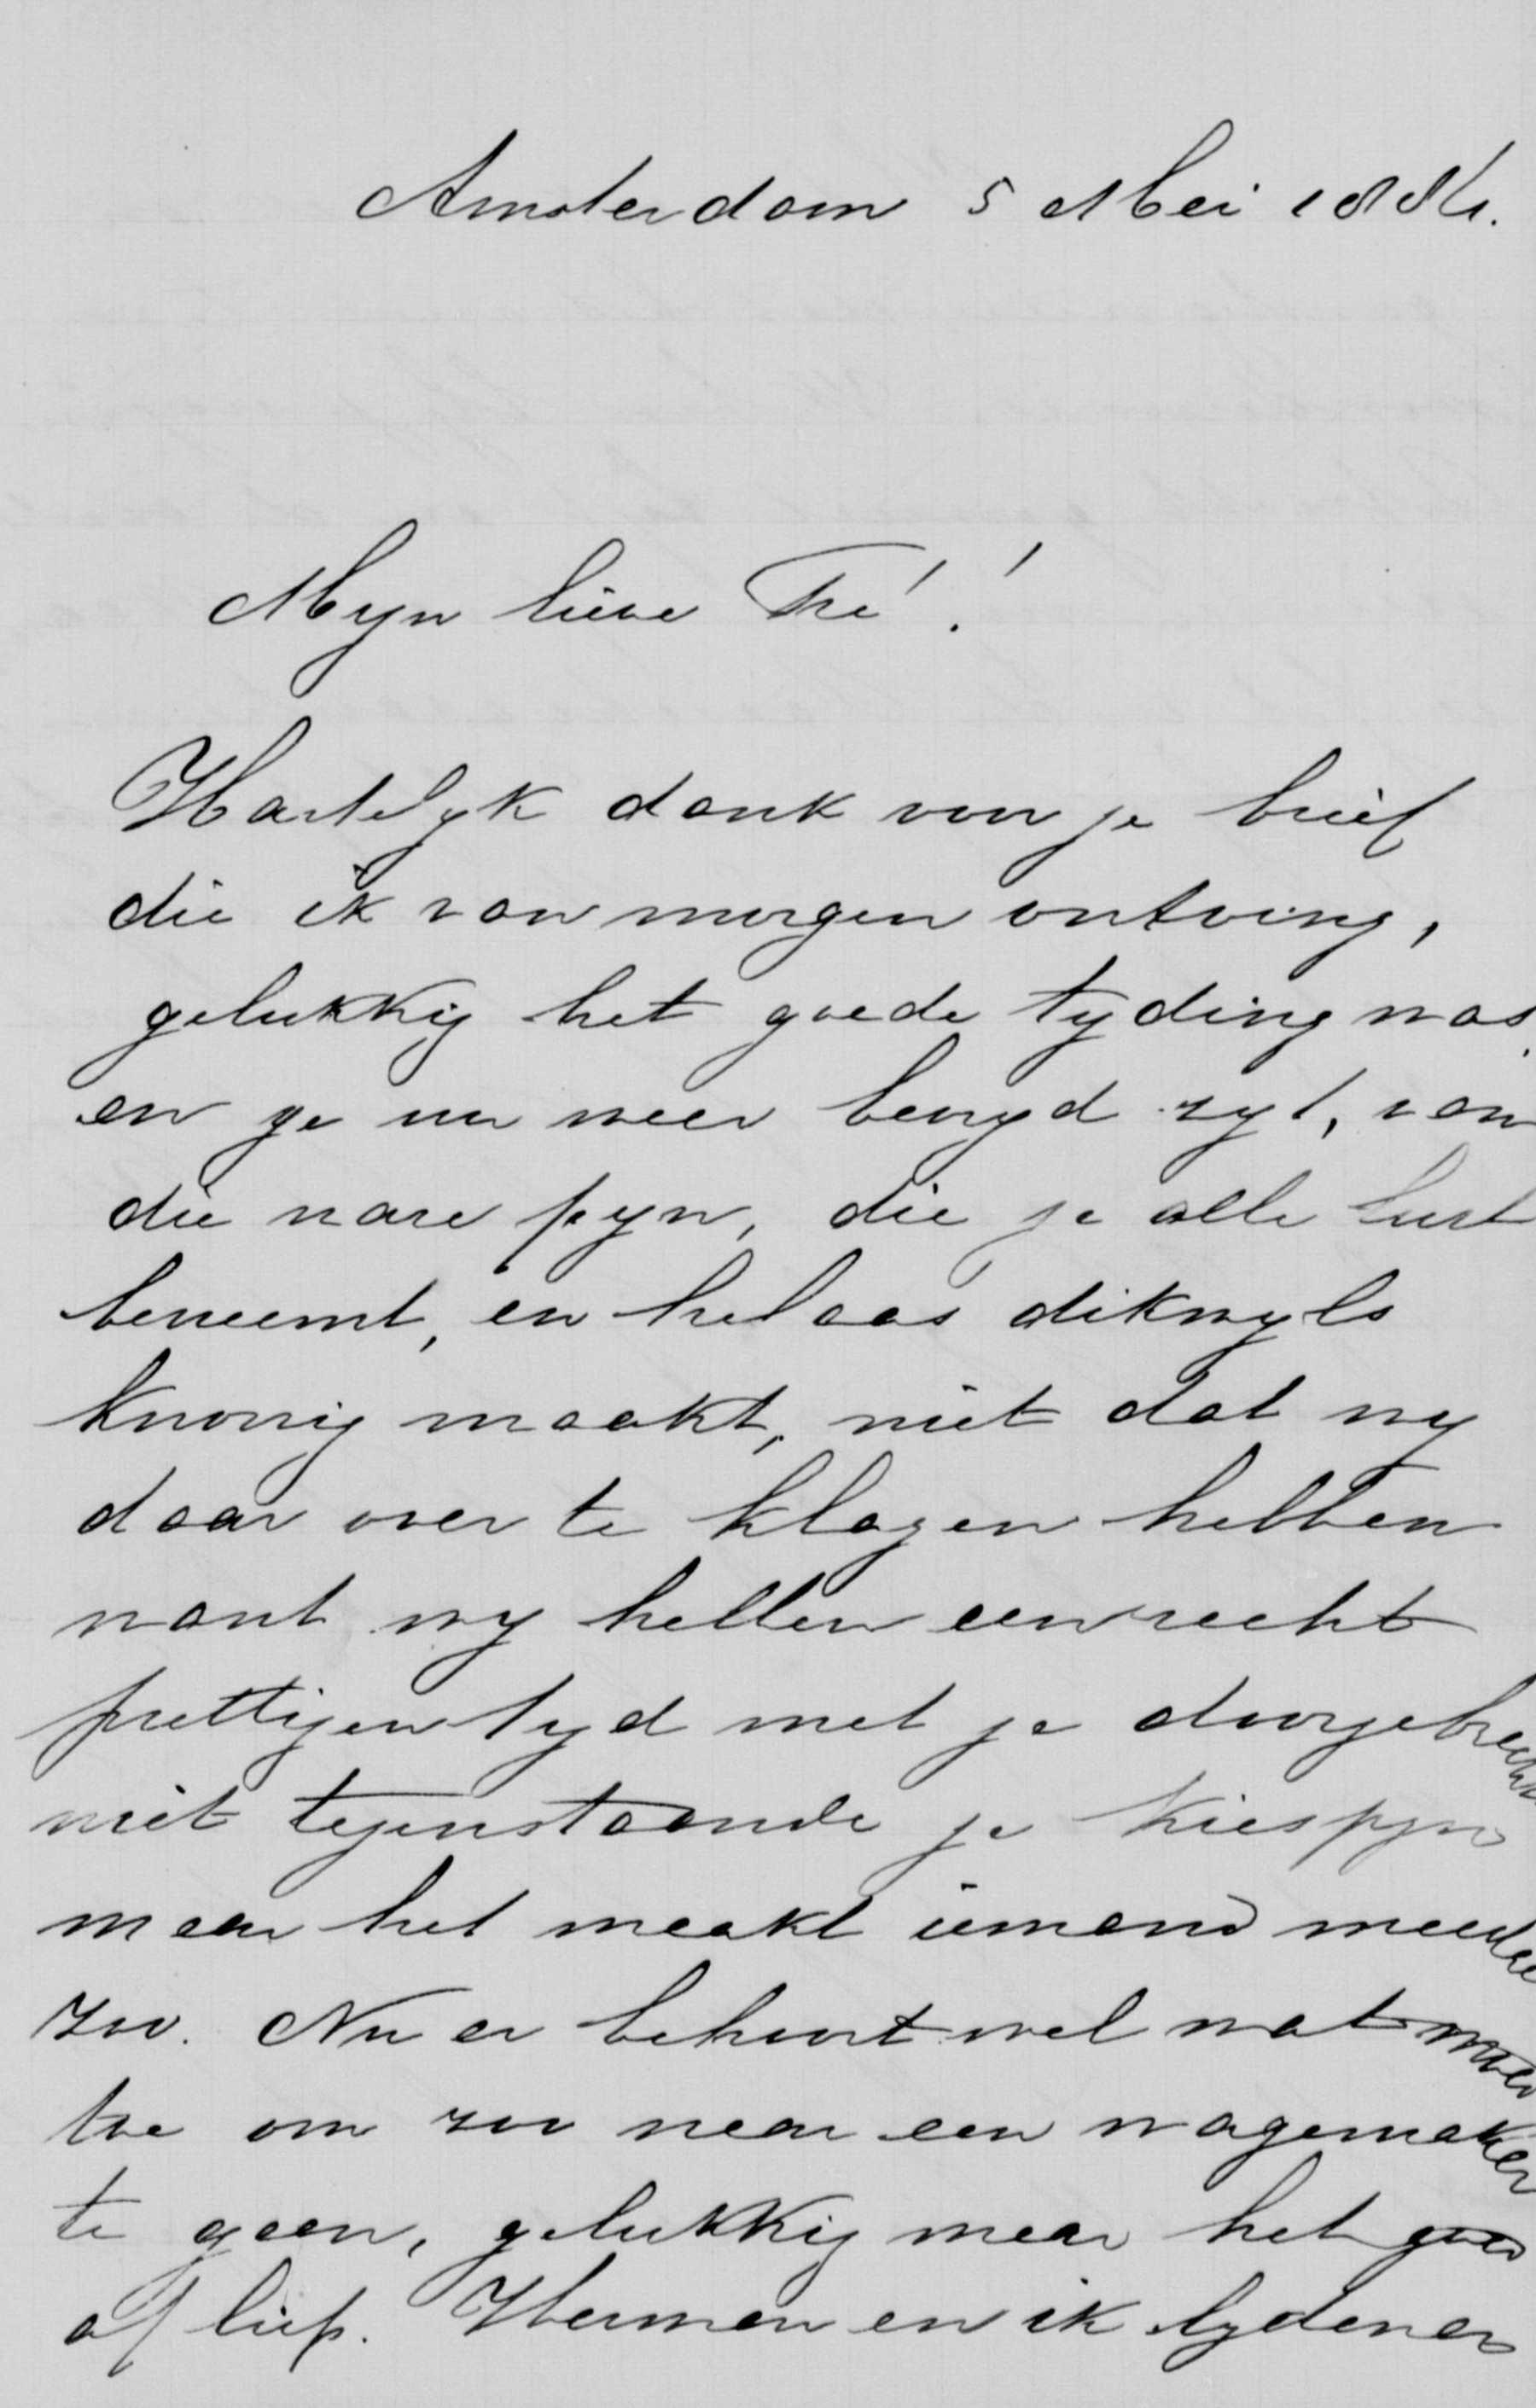 Amsterdam 5 Mei 1884.
Myn lieve Fré!
Hartelyk dank voor je brief
die ik van morgen ontving,
gelukkig het goede tyding was
en ge nu weer bevryd zyt, van
die nare pyn, die je alle lust
beneemt, en helaas dikwyls
knorrig maakt, niet dat wy
daar over te klagen hebben
want wy hebben een recht
prettigen tyd met je doorgebracht
niet tegenstaande je kiespyn
maar het maakt iemand meestal
zoo. Nu er behoort wel wat moed
toe om zoo naar een wagemaker
te gaan, gelukkig maar het goed
af liep. Herman en ik lyden er